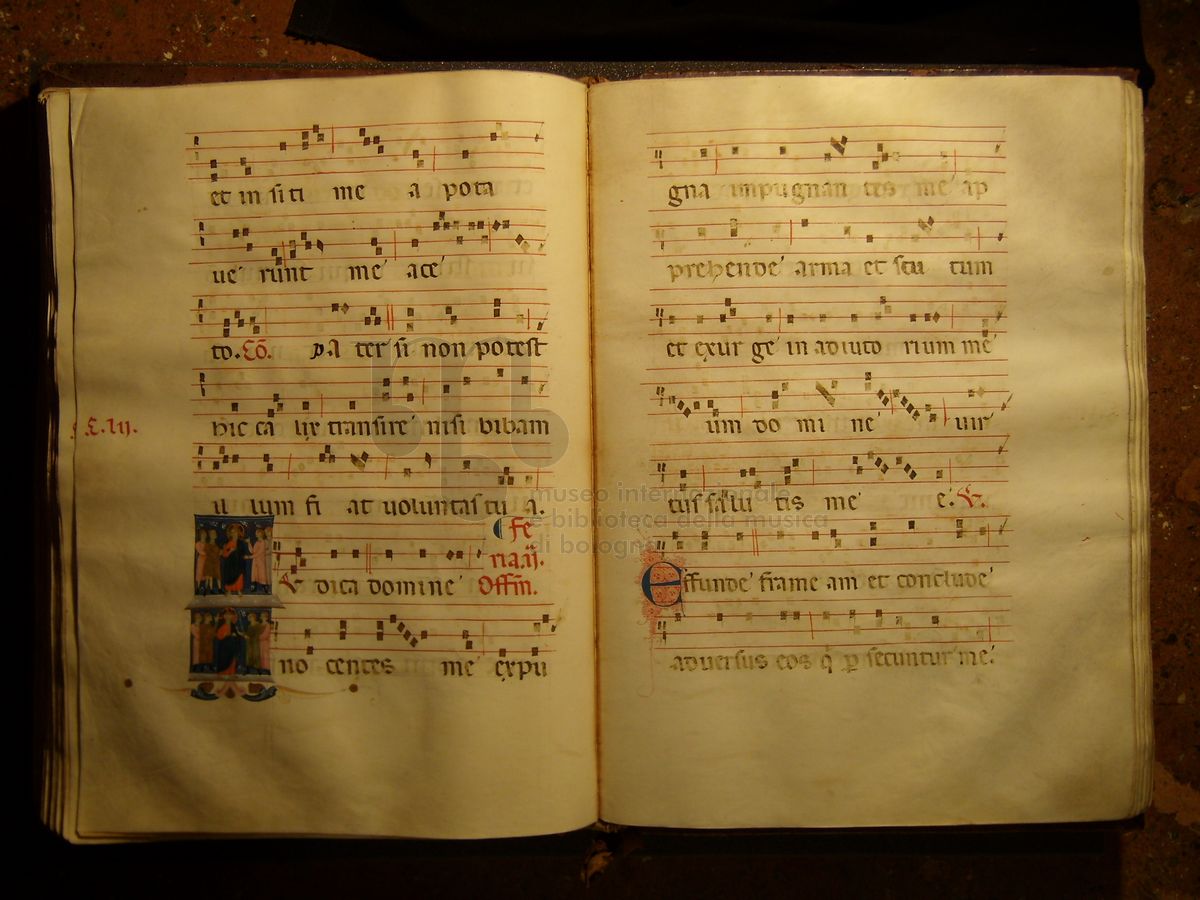 et in siti me a pota
ue runt me ace
to. Co. Pa ter si non potest
hic ca lix transire nisi bibam
C. lij.
il lum fi at uoluntas tu a.
Fe
ria.ij.
Offm.
V dica domine
no centes me expu
gna impugnan tes me ap
prehende arma et scu tum
et exur ge in adiuto rium me
um do mi ne uir
tus salu tis me e. V.
Effunde frame am et conclude
aduersus eos q̇ p̱ secuntur me.
museo internazionale
e biblioteca della musica
di bologna